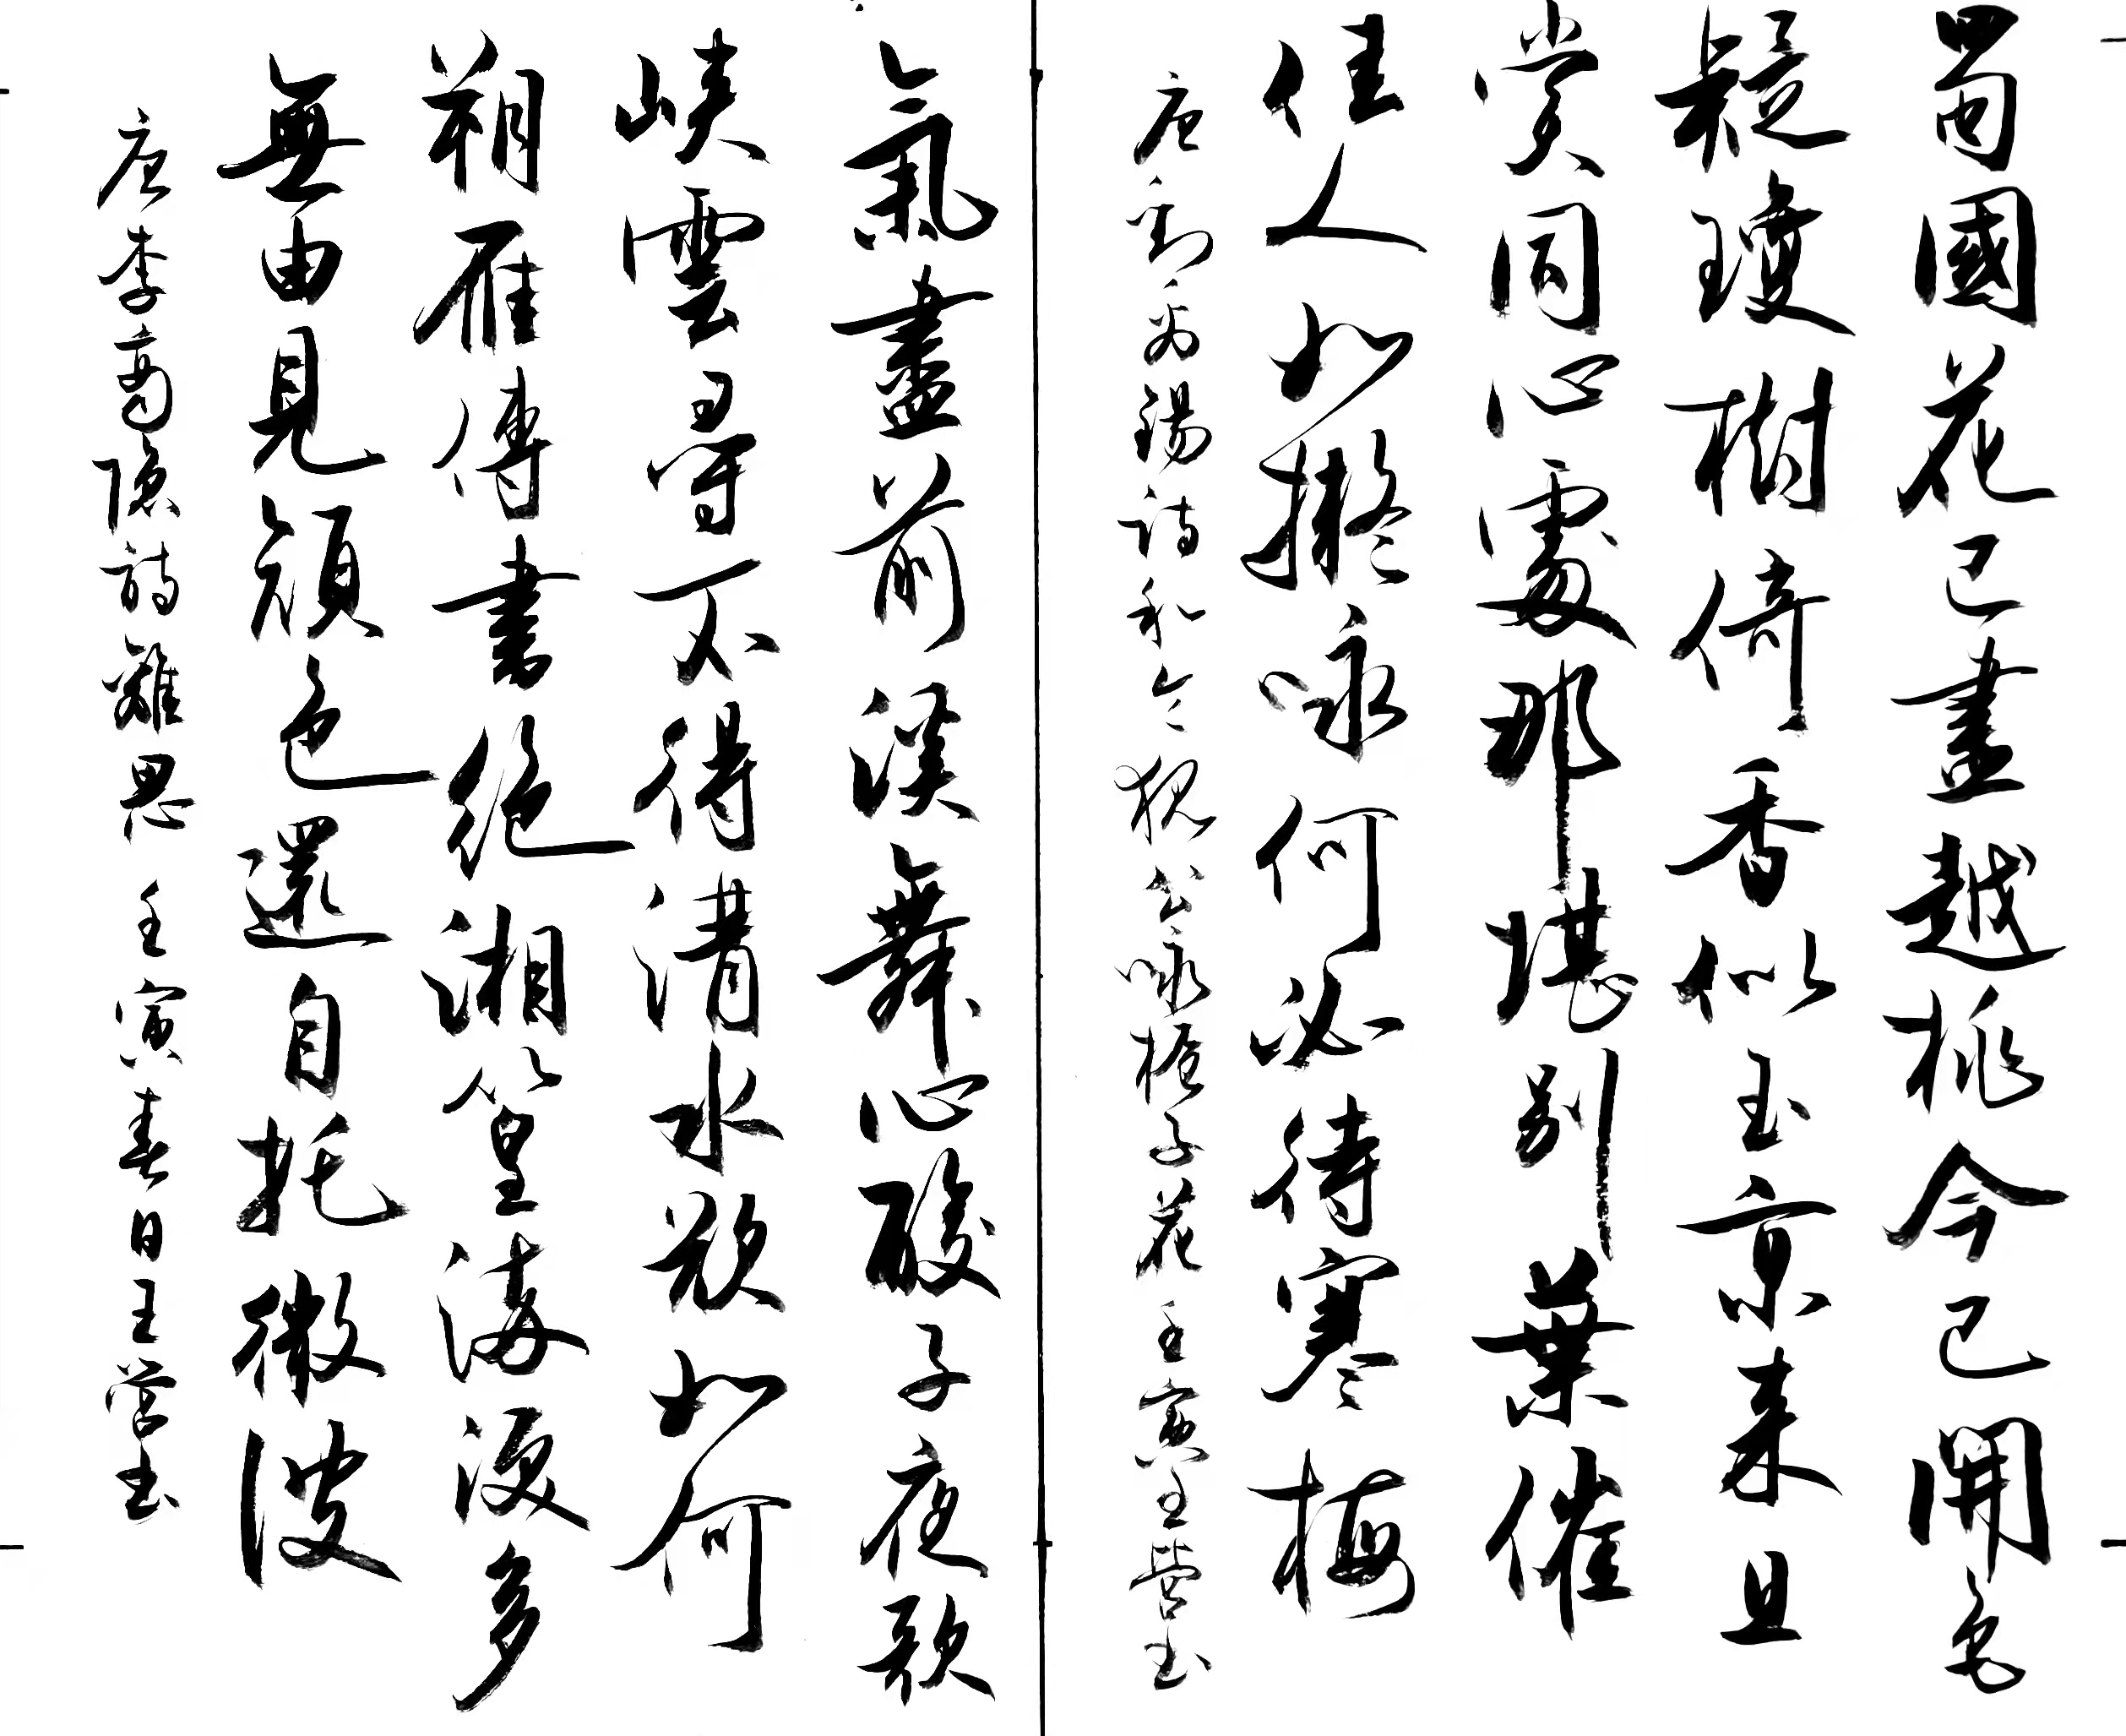 蜀國花已盡越桃今已開色
疑瓊樹倚香似玉京来且
賞同心處那堪別葉催
佳人如擬咏何必待寒梅
唐劉禹錫詩和令狐公咏栀子花 壬寅王營书
氣盡前溪舞心酸子夜歌
峽雲尋不得溝水欲如何
朔雁傳書絕湘篁染淚多
無由見顏色還自托微波
唐李商隱詩離思 壬寅春日王營书